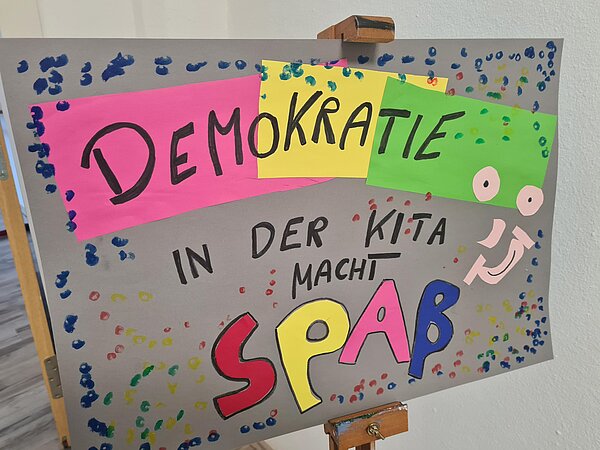 DEMOKRATIE
IN DER KITA
MACHT
SPAß